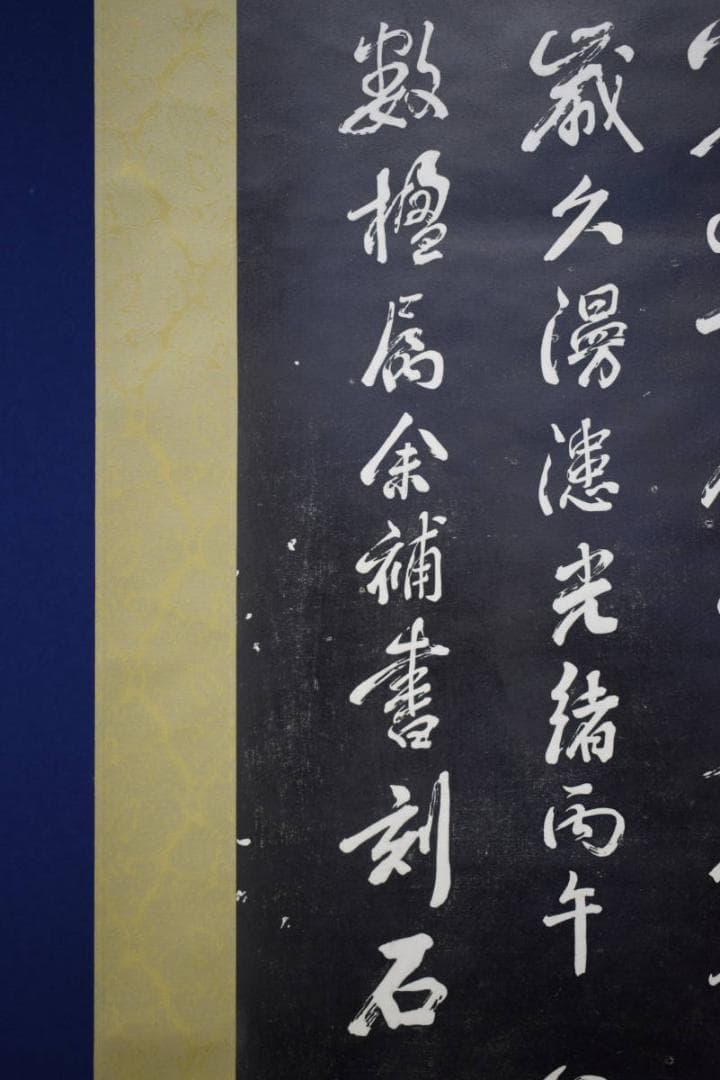 歲久漫漶光緒丙午
數楹属余補書刻石